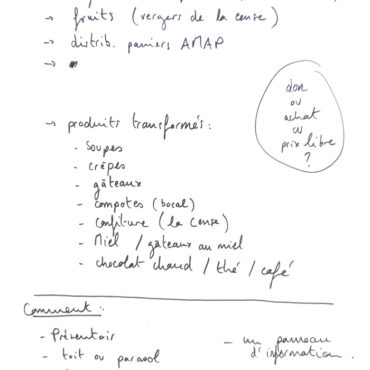 → fruits (vergers de la cense)
→ distrib. paniers AMAP
→
→ produits transformés :
don
ou
achat
ou
prix libre
?
- soupes
- crêpes
- gâteaux
- compotes (bocal)
- confiture (la cense)
- Miel / gâteaux au miel
- chocolat chaud / thé / café
Comment :
- Présentoir
- toit ou parasol
- un panneau
d'information.